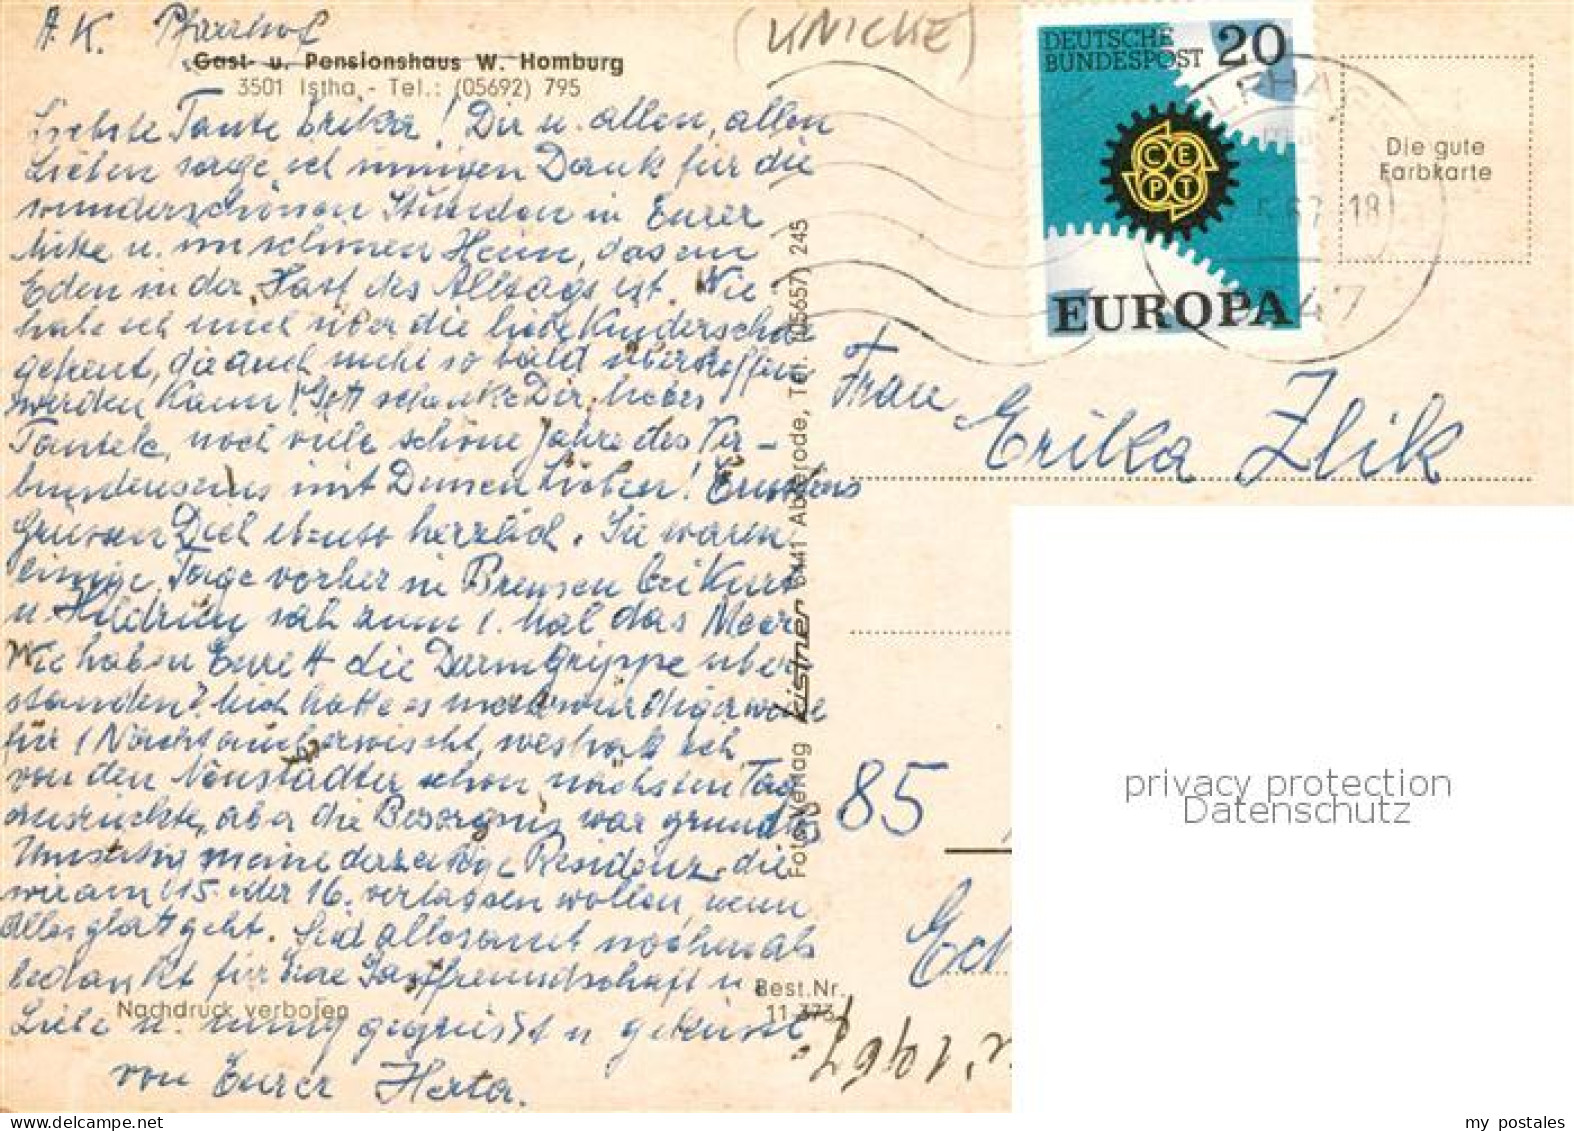 A.K. Pfarrhof
(UNICKE)
Gast- u. Pensionshaus W. Homburg
3501 Istha - Tel.: (05692) 795
Liebste Tante Erika! Dir u. allen, allen
Lieben sage ich innigen Dank für die
wunderschönen Stunden in Eurer
Mitte u. im schönen Heim, das ein
Eden in der Hast des Alltags ist. Wie
habe ich mich über die liebe Kinderschar
gefreut, die auch nicht so bald übertroffen
werden kann! Gott schenke Dir, liebes
Tantele, noch viele schöne Jahre des Ver-
bundenseins mit Deinen Lieben!
Grüssen Dich ebenso herzlich. Sie waren
einige Tage vorher in Bremen bei Kurt
u. sah zum 1. Mal das Meer
Wie haben die Darmgrippe über-
standen? Mich hatte es merkwürdigerweise
für 1 Nacht auch erwischt, weshalb ich
von den Neustädter schon nächsten Tag
ausrückte, aber die Besorgnis war grundlos
meine derzeitige Residenz, die
wir am 15. oder 16. verlassen wollen, wenn
Alles glatt geht. Seid allesamt nochmals
bedankt für Eure Gastfreundschaft u.
Liebe u. innig gegrüsst u. geküsst
von Eurer Herta.
Nachdruck verboten
Best.Nr.
11 373
Foto-Verlag Kistner 6441 Abterode, Tel. (05657) 245
DEUTSCHE
BUNDESPOST
20
CEPT
EUROPA
67 18
47
Die gute
Farbkarte
Frau
Erika Zlik
85
1967
privacy protection
Datenschutz
my postales